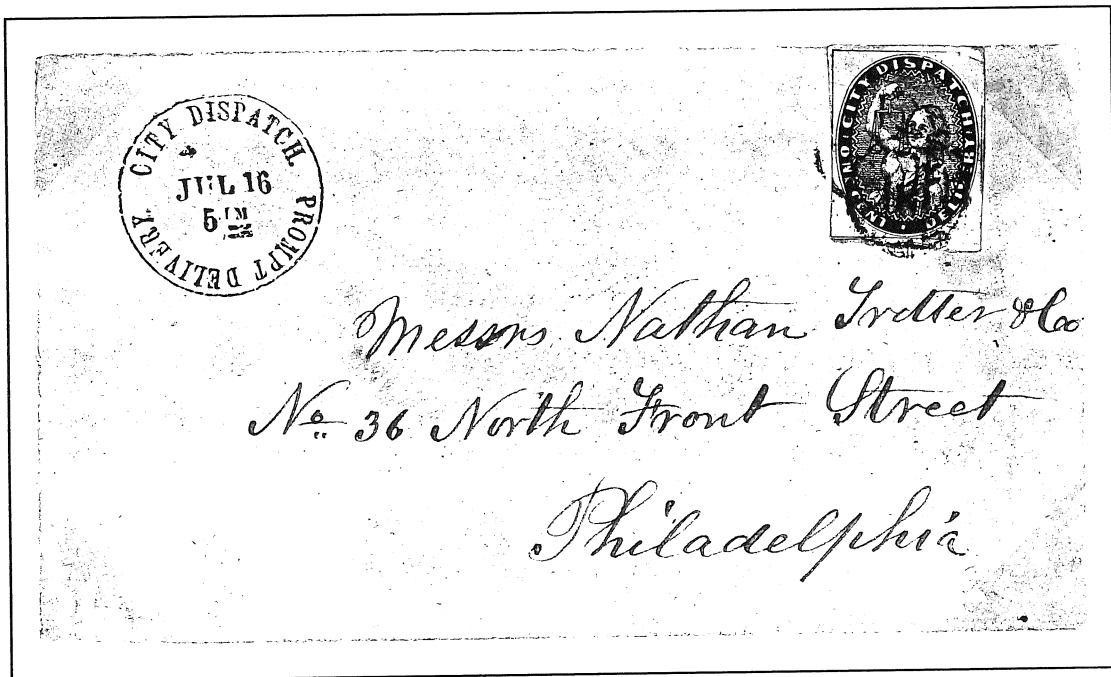 CITY DISPATCH. PROMPT DELIVERY.
JUL 16
5 PM
CITY DISPATCH
Messrs Nathan Trotter & Co
No 36 North Front Street
Philadelphia